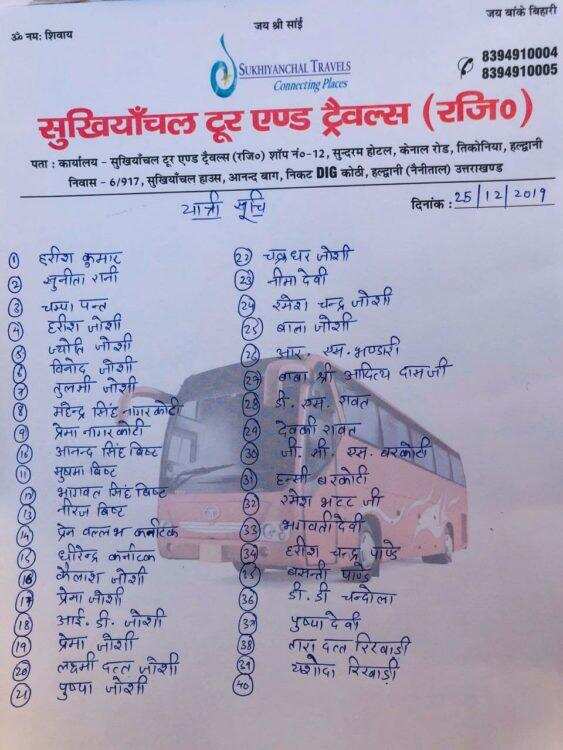 ॐ नम: शिवाय
जय श्री सांई
जय बांके बिहारी
SUKHIYANCHAL TRAVELS
Connecting Places
8394910004
8394910005
सुखियाँचल टूर एण्ड ट्रैवल्स (रजि०)
पता : कार्यालय - सुखियाँचल टूर एण्ड ट्रैवल्स (रजि०) शॉप नं०-12, सुन्दरम होटल, केनाल रोड, तिकोनिया, हल्द्वानी
निवास - 6/917, सुखियाँचल हाउस, आनन्द बाग, निकट DIG कोठी, हल्द्वानी (नैनीताल) उत्तराखण्ड
दिनांक : 25/12/2019
यात्री सूचि
1 हरीश कुमार
2 सुनीता रानी
3 चम्पा पन्त
4 हरीश जोशी
5 ज्योति जोशी
6 विनोद जोशी
7 तुलसी जोशी
8 महेन्द्र सिंह नागरकोटी
9 प्रेमा नागरकोटी
10 आनन्द सिंह बिष्ट
11 सुषमा बिष्ट
12 भागवत सिंह बिष्ट
13 नीरज बिष्ट
14 प्रेम वल्लभ कर्नाटक
15 धीरेन्द्र कर्नाटक
16 कैलाश जोशी
17 प्रेमा जोशी
18 आई. डी. जोशी
19 प्रेमा जोशी
20 लक्ष्मी दत्त जोशी
21 पुष्पा जोशी
22 चक्रधर जोशी
23 नीमा देवी
24 रमेश चन्द्र जोशी
25 जोशी
26 आर. एस. भण्डारी
27 बाबा श्री आदित्य दास जी
28 डी. एस. रावत
29 देवकी रावत
30 जी. सी. एस. बरकोटी
31 हन्सी बरकोटी
32 रमेश भटट जी
33 भगवती देवी
34 हरीश चन्द्र पाण्डे
35 बसन्ती पाण्डे
36 डी. डी चन्दोला
37 पुष्पा देवी
38 तारा दत्त रिखाड़ी
39 यशोदा रिखाड़ी
40